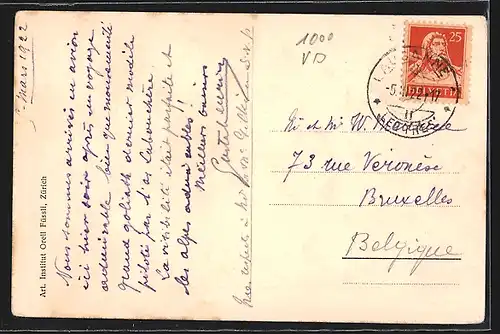 5 Mars 1922
Nous sommes arrivés en avion
ici hier soir après un voyage
admirable bien que mouvementé
grand goliath dernier modèle
piloté par d'as Labouchère
La visibilité était parfaite et
les alpes admirables!
Meilleurs baisers
Art. Institut Orell Füssli, Zürich
1000
VD
25
HELVETIA
LAUSANNE
Mr et Mr W.
73 rue Veronèse
Bruxelles
Belgique